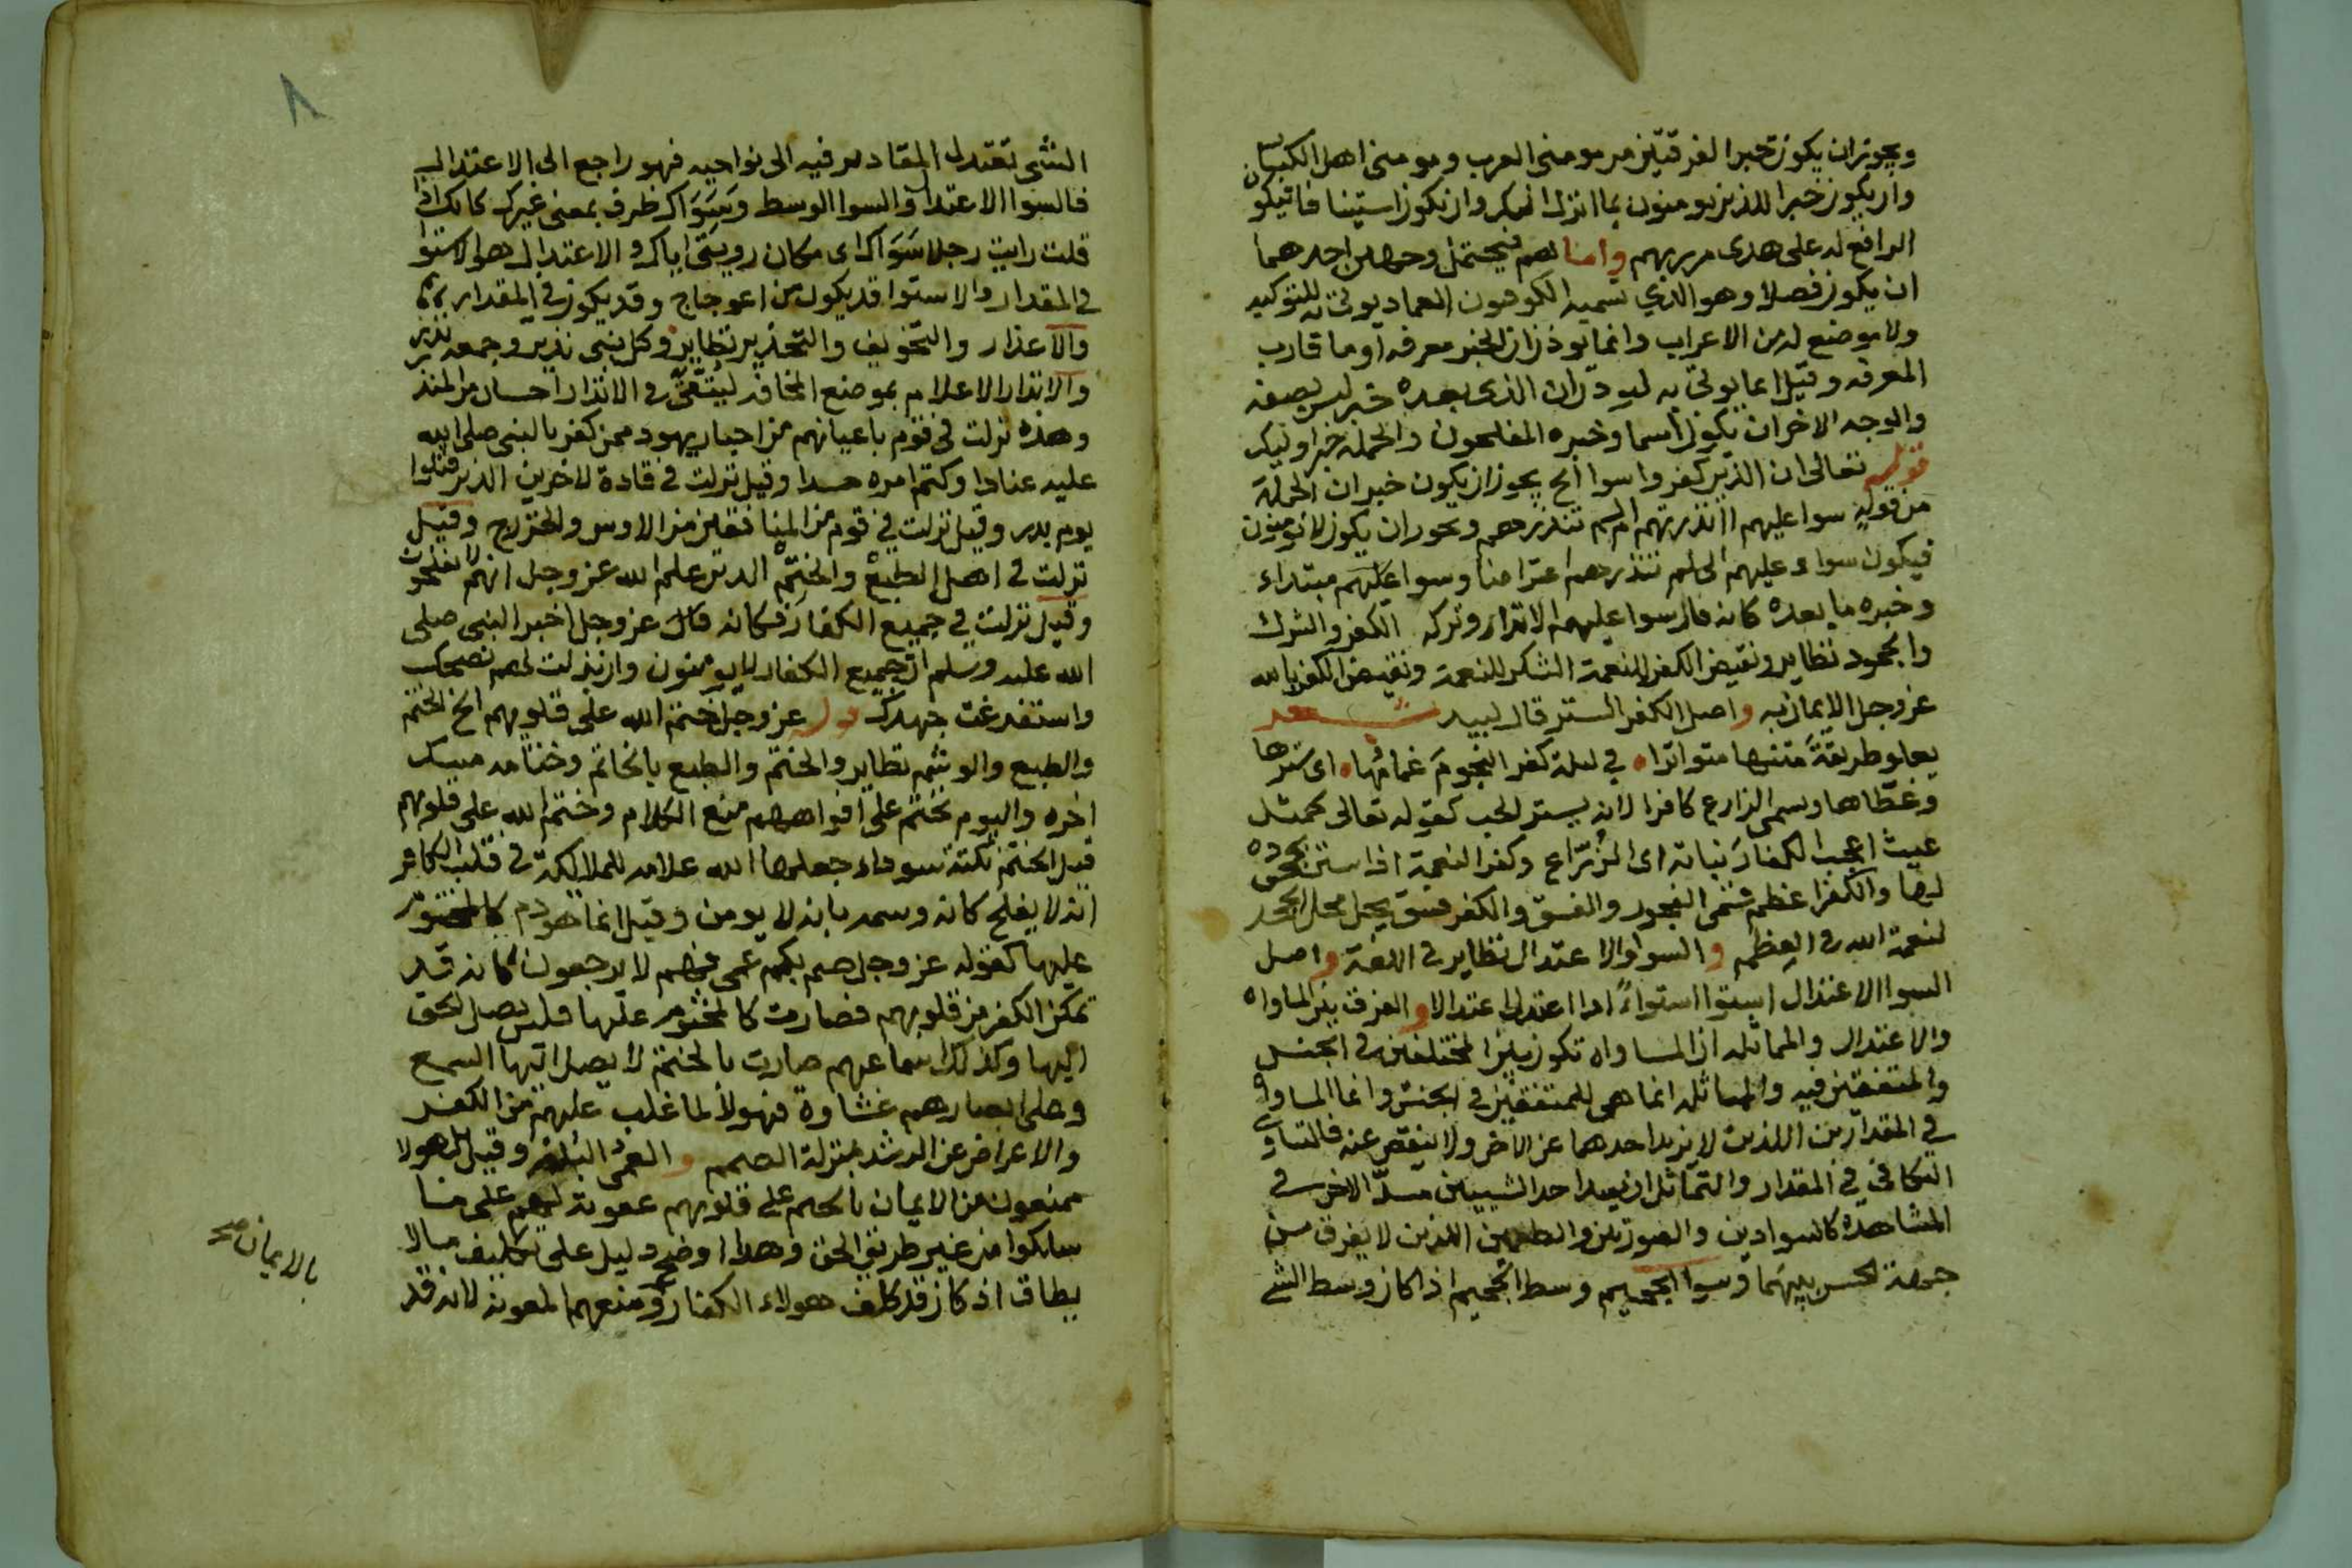 ويجوز ان يكون خبرا لفرقتين من مومني العرب ومومني اهل الكتاب
وان يكون خبرا للذين يومنون بما انزل اليك وان يكون استينافا فيكون
الرافع له على هدى من ربهم واما هم فيحتمل وجهين احدهما
ان يكون فصلا وهو الذي تسميه الكوفيون العماد يوتى به للتوكيد
ولا موضع له من الاعراب وانما يوذن ان الخبر معرفه او ما قارب
المعرفه وقيل انما يوتى به ليوذن ان الذي بعده خبر ليس بصفه
والوجه الاخر ان يكون اسما وخبره المفلحون والجمله خبر اوليك
قوله تعالى ان الذين كفروا سوا الخ يجوز ان يكون خبر ان الجملة
من قوله سوا عليهم اانذرتهم ام لم تنذرهم ويجوز ان يكون لا يومنون
فيكون سواء عليهم الى لم تنذرهم اعتراضا وسوا عليهم مبتداء
وخبره ما بعده كانه قال سوا عليهم الانذار وتركه الكفر والشرك
والجحود نظاير ونقيض الكفر للنعمة الشكر للنعمة ونقيض الكفر بالله
عز وجل الايمان به واصل الكفر الستر قال لبيد شعر
يعلو طريقةَ متنها متواترا ه في ليلة كفر النجومَ غمامُها ه اى سترها
وغطّاها وسمي الزارع كافرا لانه يستر الحب كقوله تعالى كمثل
غيث اعجب الكفارَ نباته اى الزُرّاع وكفر النعمة اذا ستر بجحوده
لها والكفر اعظم من الفجور والفسق والكفر فسق يحل محل الجحد
لنعمة الله في العِظَم والسوا والاعتدال نظاير في اللغة واصل
السوا الاعتدال استوا استواءً اذا اعتدل اعتدالا والفرق بين المساواه
والاعتدال والمماثله ان المساواه تكون بين المختلفين في الجنس
والمتفقين فيه والمماثله انما هي للمتفقين في الجنس وانما المساواه
في المقدارين اللذين لا يزيد احدهما عن الاخر ولا ينقص عنه فالتساوي
التكافي في المقدار والتماثل ان يسد احد الشيين مسدّ الاخر في
المشاهده كالسوادين والصورتين والطعمين اللذين لا يفرق من
جهة الحس بينهما وسوا الجحيم وسط الجحيم اذا كان وسط الشي
٨
الشي تعتدل المقادير فيه الى نواحيه فهو راجع الى الاعتدال
فالسوا الاعتدال والسوا الوسط وسَوَاك ظرف بمعنى غيرك كانك اذا
قلت رايت رجلا سَوَاك اى مكان رويتي اياك والاعتدال هو الاستوا
في المقدار والاستوا قد يكون من اعوجاج وقد يكون في المقدار
والاعذار والتخويف والتحذير نظاير وكل نبي نذير وجمعه نذر
والانذار الاعلام بموضع المخافه ليتّقى والانذار احسان من المنذر
وهذه نزلت في قوم باعيانهم من احبار يهود ممن كفر بالنبي صلى الله
عليه عنادا وكتم امره حسدا وقيل نزلت في قادة الاحزاب الذين قتلوا
يوم بدر وقيل نزلت في قوم من المنافقين من الاوس والخزرج وقيل
نزلت في اهل الطبع والختم الذين علم الله عز وجل انهم لا يفلحون
وقيل نزلت في جميع الكفار فكانه قال عز وجل اخبر النبي صلى
الله عليه وسلم ان جميع الكفار لا يومنون وان بذلت لهم نصحك
واستفرغت جهدك قوله عز وجل ختم الله على قلوبهم الخ الختم
والطبع والوشم نظاير والختم والطبع بالخاتم وختامه مسك
اخره واليوم نختم على افواههم منع الكلام وختم الله على قلوبهم
قيل الختم نكتة سوداء جعلها الله علامه للملائكة في قلب الكافر
انه لا يفلح كانه وسمه بانه لا يومن وقيل انما هو ذم كالمختوم
عليها كقوله عز وجل صم بكم عمي فهم لا يرجعون كانه قد
تمكن الكفر من قلوبهم فصارت كالمختوم عليها فليس يصل الحق
اليها وكذلك اسماعهم صارت بالختم لا يصل اليها السمع
وعلى ابصارهم غشاوة فهولا لما غلب عليهم من الكفر
والاعراض عن الرشد بمنزلة الصم والعمي البُلْه وقيل بل هولا
ممنعون من الايمان بالختم على قلوبهم عقوبة لهم على ما
سلكوا من غير طريق الحق وهذا اوضح دليل على تكليف ما لا
يطاق اذ كان قد كلف هولاء الكفار ومنعهم المعونة لانه قد
بالايمان صح